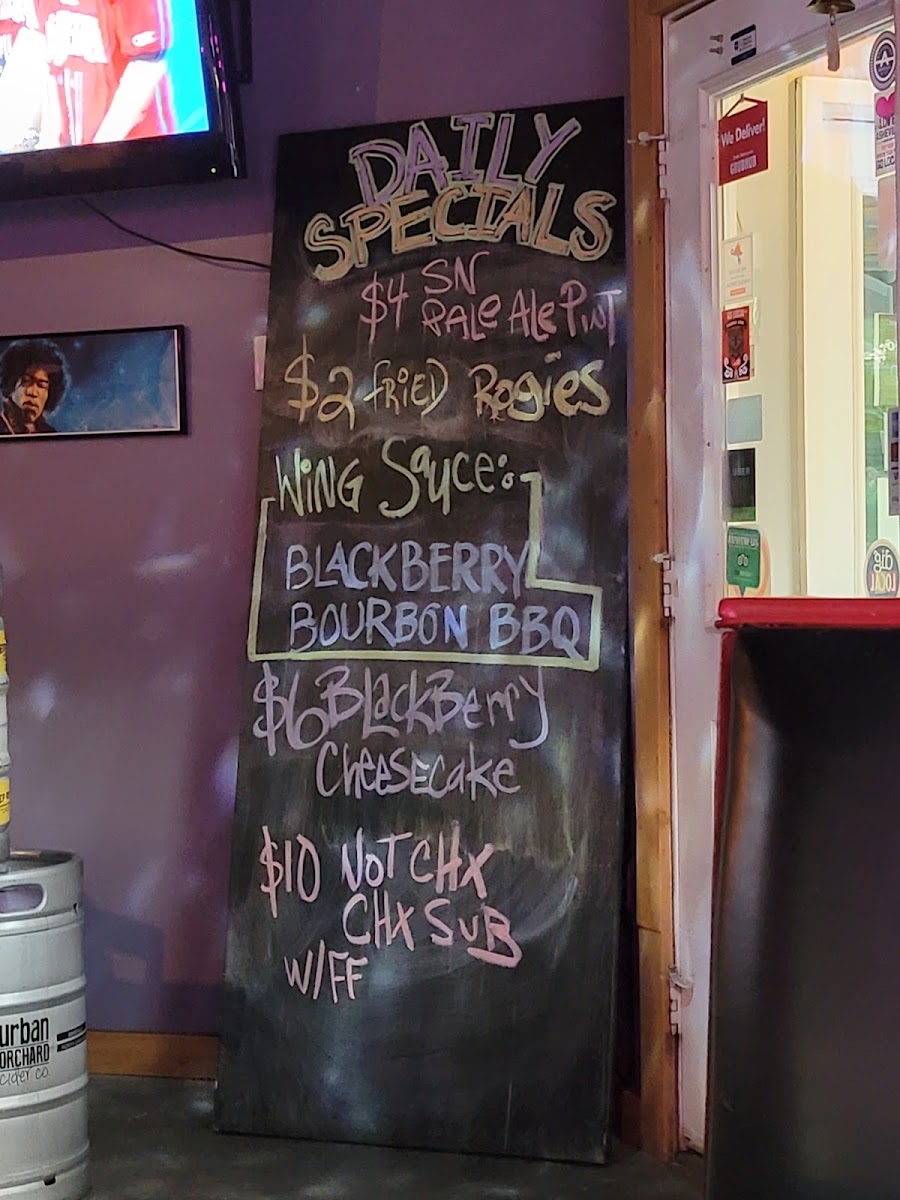 DAILY
SPECIALS
$4 SN
PALE ALE PINT
$2 FRIED ROGIES
WING SAUCE:
BLACKBERRY
BOURBON BBQ
$6 BLACKBERRY
CHEESECAKE
$10 NOT CHX
CHX SUB
W/FF
We Deliver!
GRUBHUB
gig
LOCAL
urban
ORCHARD
cider co.